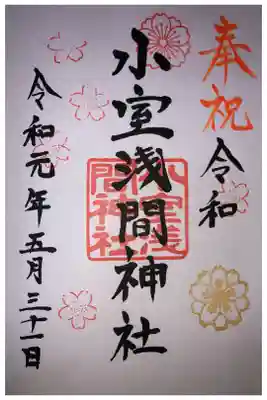 奉祝
令和
小室浅間神社
小室浅間神社
令和元年五月三十一日